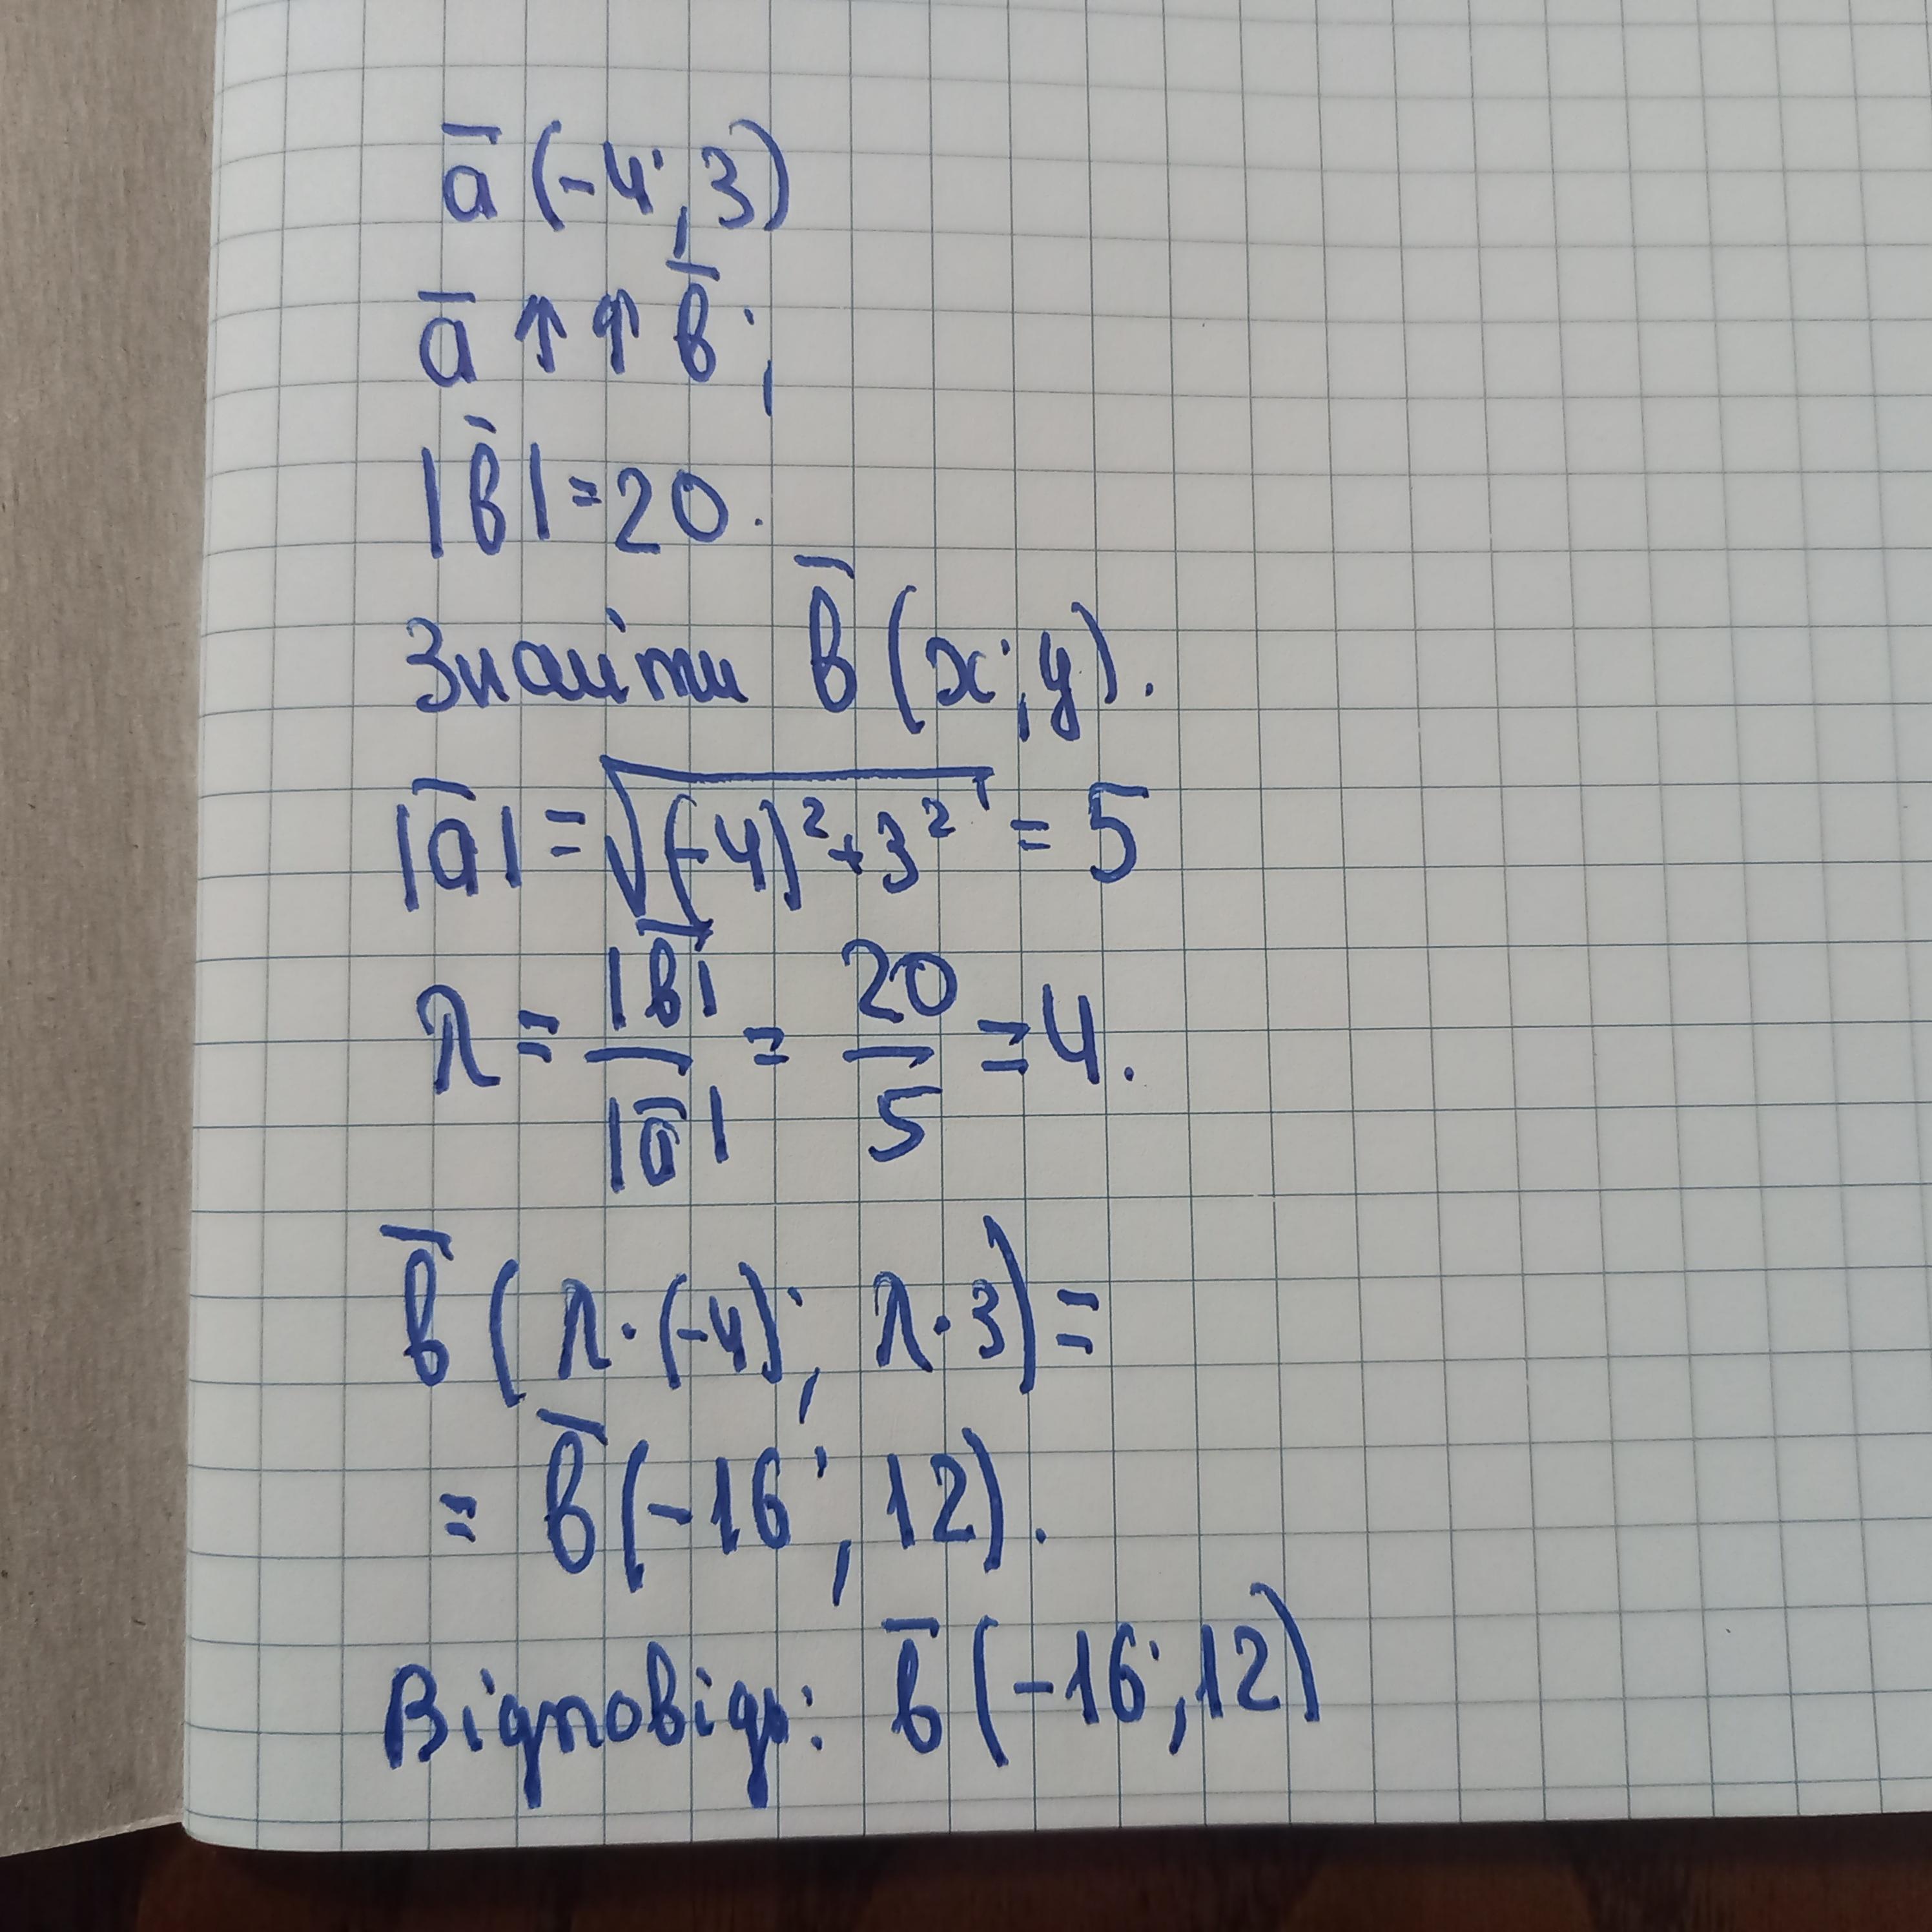 a̅ (-4; 3)
a̅ ↑↑ b̅;
|b̅| = 20.
Знайти b̅ (x; y).
|a̅| = √((-4)² + 3²) = 5
λ = |b̅| / |a̅| = 20 / 5 = 4.
b̅ (λ·(-4); λ·3) =
= b̅ (-16; 12).
Відповідь: b̅ (-16; 12)